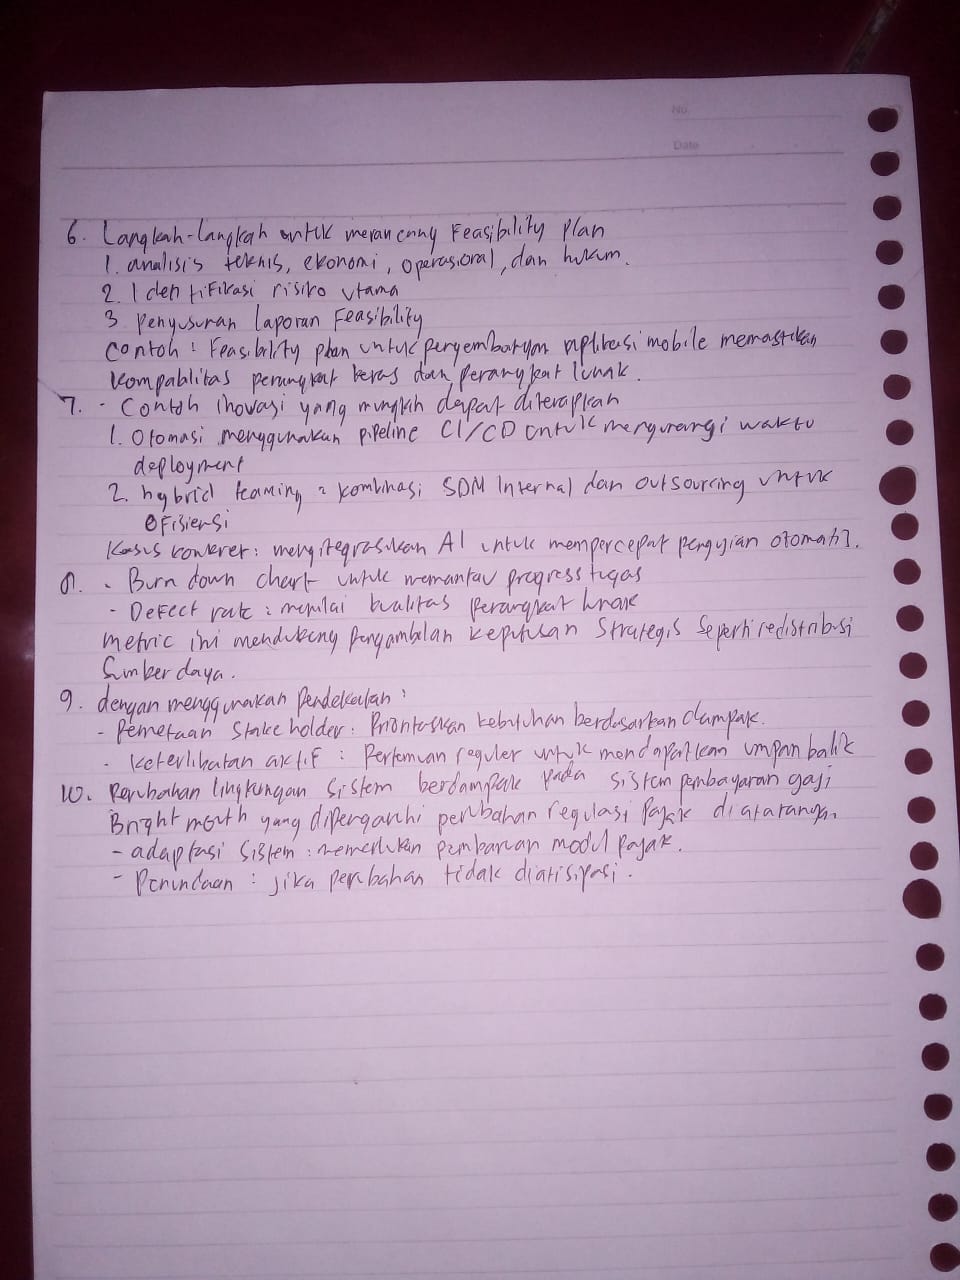 No.
Date
6. Langkah-langkah untuk merancang Feasibility Plan
1. analisis teknis, ekonomi, operasional, dan hukum.
2. Identifikasi risiko utama
3. Penyusunan laporan Feasibility
Contoh : Feasibility plan untuk pengembangan aplikasi mobile memastikan
kompablitas perangkat keras dan perangkat lunak.
7. - Contoh inovasi yang mungkin dapat diterapkan
1. Otomasi menggunakan pipeline CI/CD untuk mengurangi waktu
deployment
2. hybrid teaming : kombinasi SDM Internal dan outsourcing untuk
efisiensi
Kasus konkret : mengitegrasikan AI untuk mempercepat pengujian otomatis.
8. - Burn down chart untuk memantau progress tugas
- Defect rate : menilai kualitas perangkat lunak
metric ini mendukung pengambilan keputusan Strategis seperti redistribusi
Sumber daya.
9. dengan menggunakan Pendekatan :
- Pemetaan Stakeholder : Prioritaskan kebutuhan berdasarkan dampak.
- keterlibatan aktif : Pertemuan reguler untuk mendapatkan umpan balik
10. Perubahan lingkungan Sistem berdampak pada sistem pembayaran gaji
Bright mouth yang dipengaruhi perubahan regulasi Pajak diantaranya
- adaptasi Sistem : memerlukan pembaruan modul Pajak.
- Penundaan : jika perubahan tidak diatisipasi.